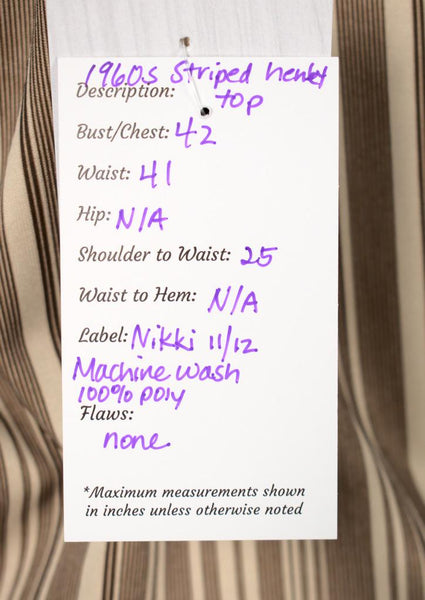 1960s Striped henley
Description: top
Bust/Chest: 42
Waist: 41
Hip: N/A
Shoulder to Waist: 25
Waist to Hem: N/A
Label: Nikki 11/12
Machine wash
100% poly
Flaws:
none
*Maximum measurements shown
in inches unless otherwise noted